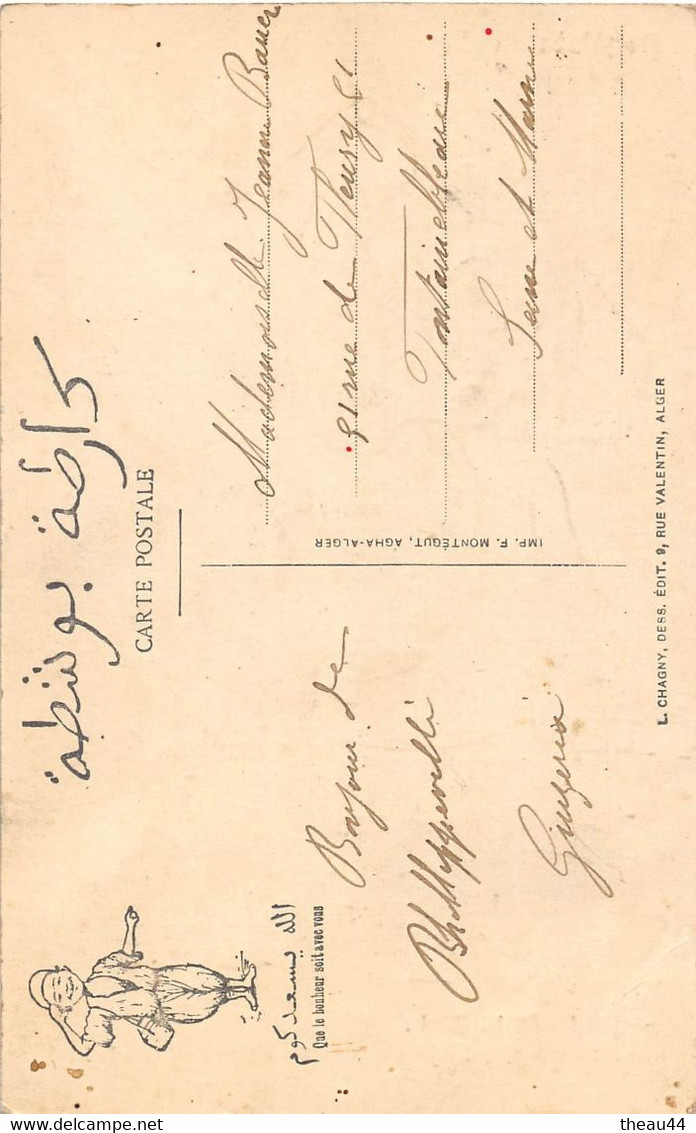 كارطة بوسطة
CARTE POSTALE
الله يسعدكوم
Que le bonheur soit avec vous
Bonjour de
Phillippeville
Mademoiselle Jeanne Bauer
51 rue de Fleury 51
Fontainebleau
Seine et Marne
IMP. F. MONTÉGUT, AGHA-ALGER
L. CHAGNY, DESS. ÉDIT. 9, RUE VALENTIN, ALGER
theau44